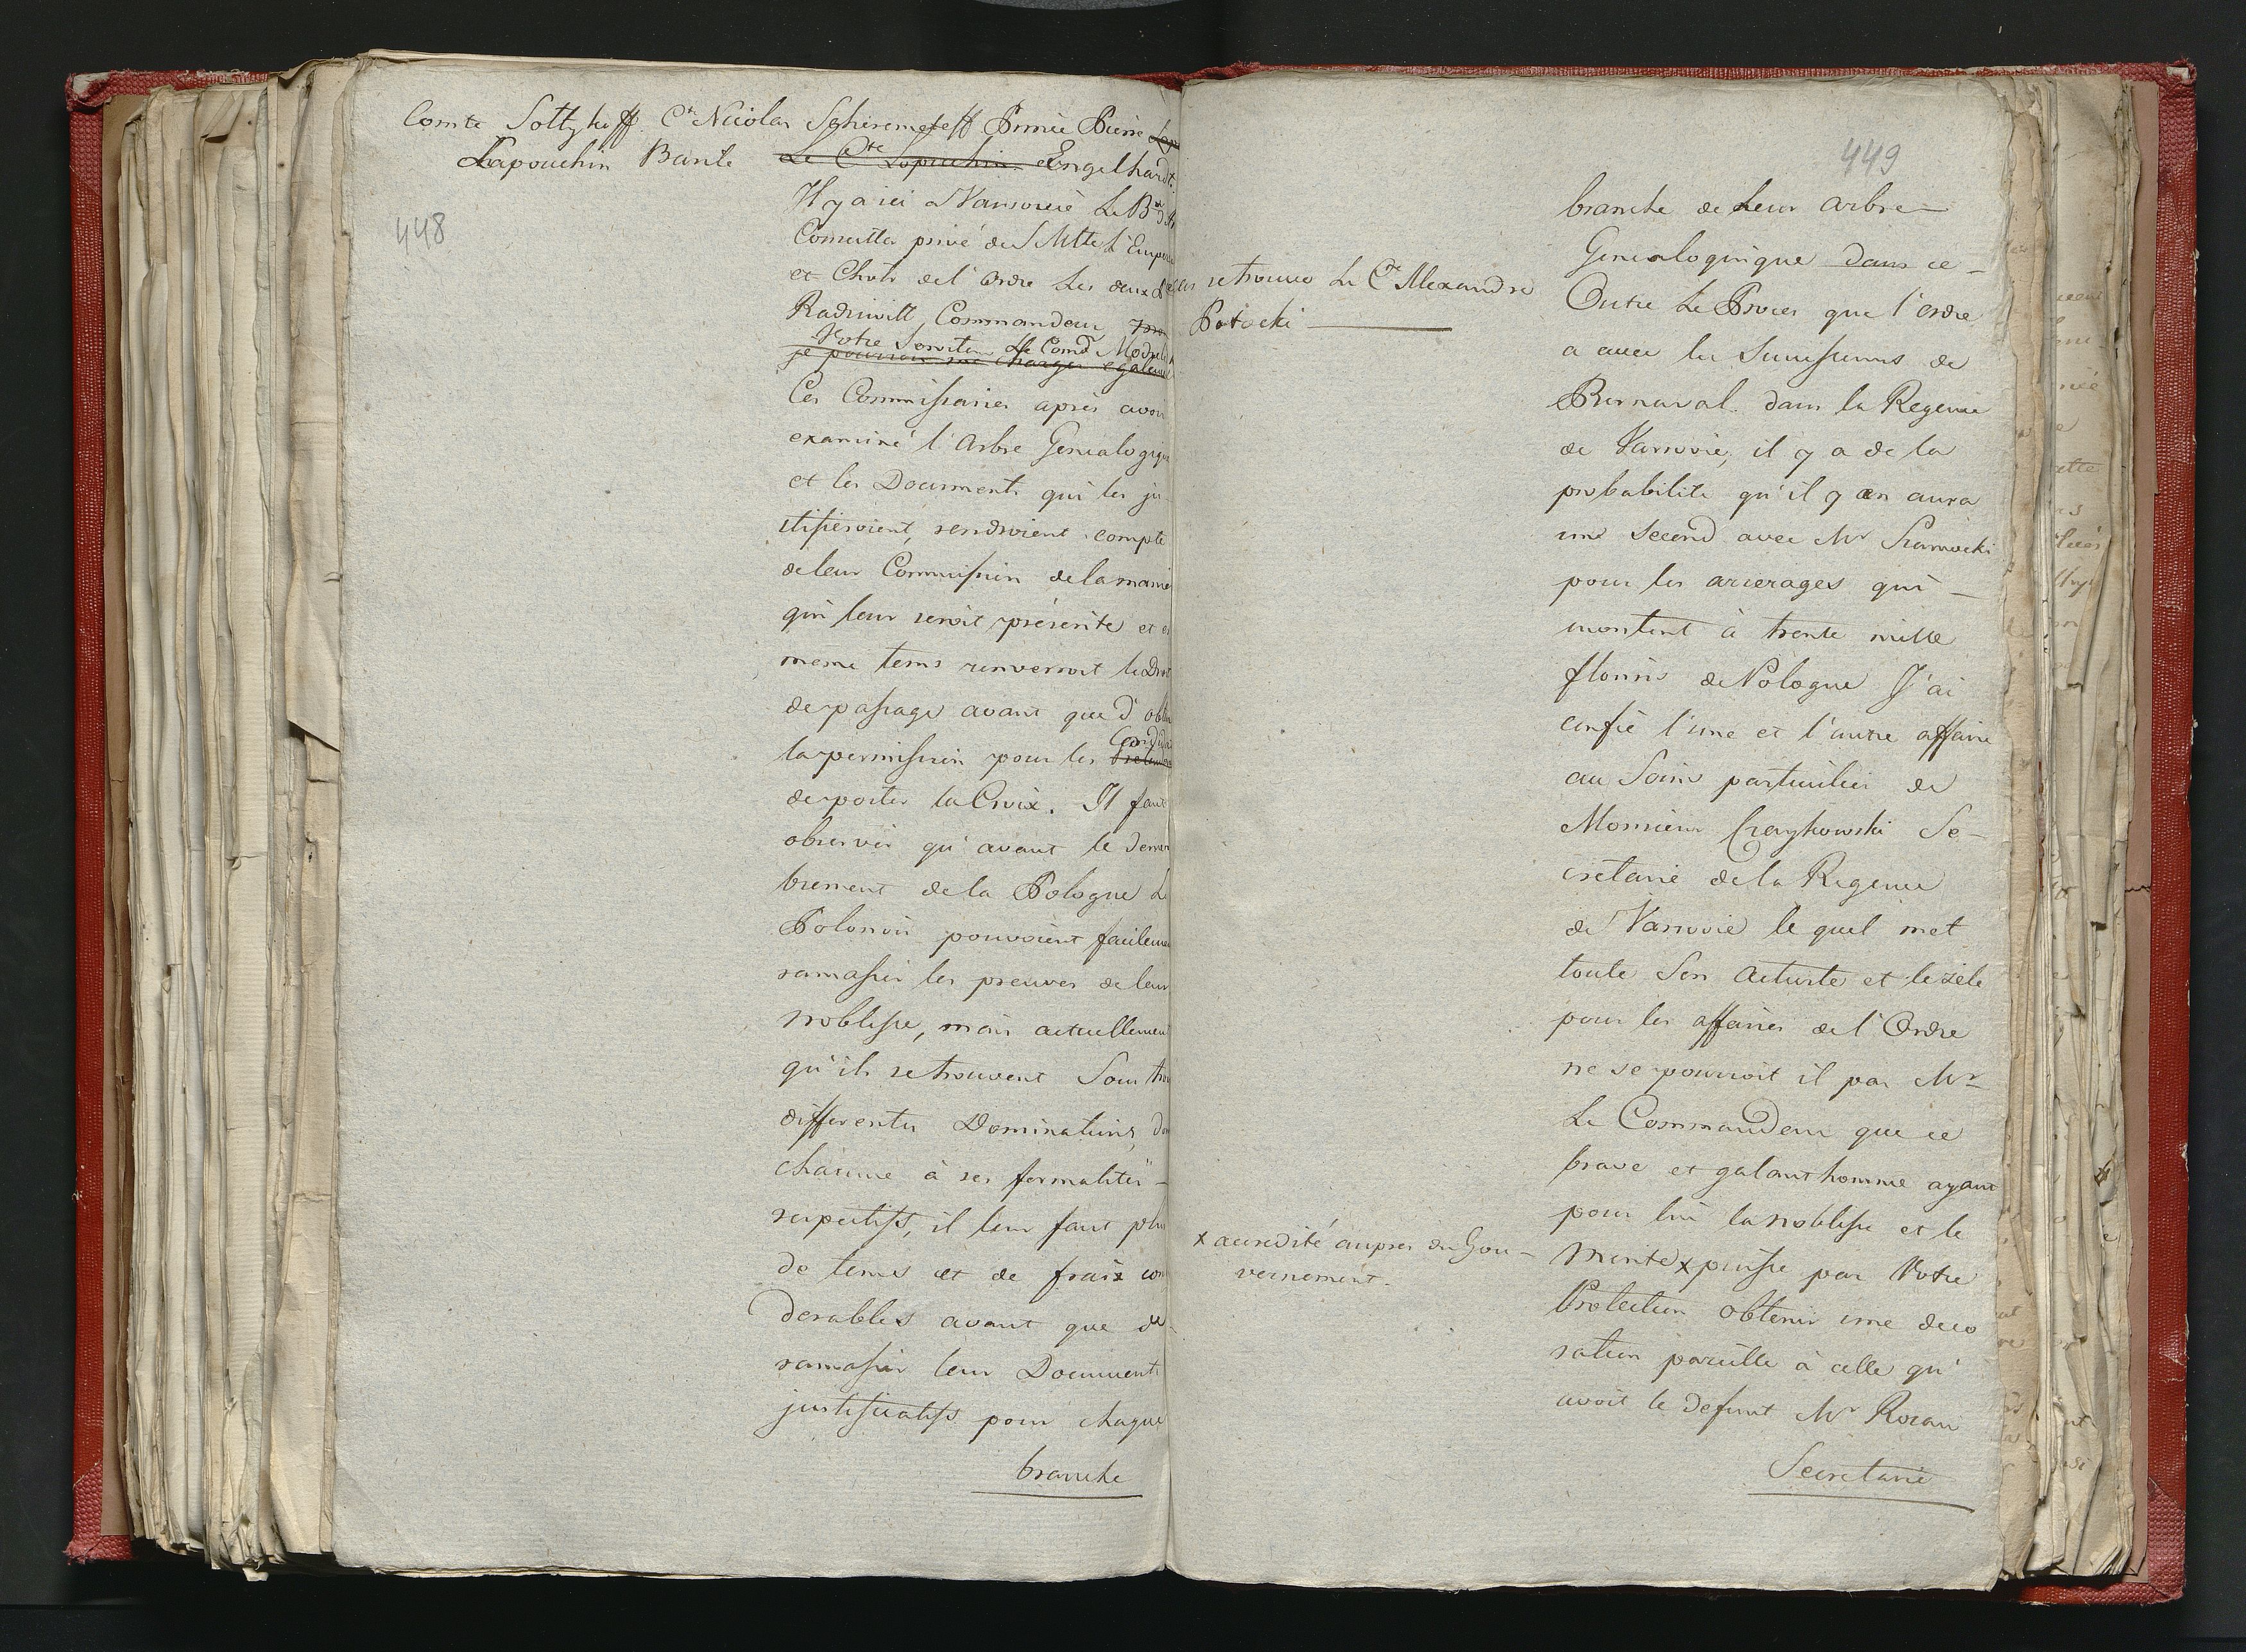 Comte Soltykoff. Ct Nicolas Scheremeteff Prince Pierre
Lapouchin Bante Le Cte Lopuchin et Engelhardt.
448
Il y a ici a Varsovie Le Bon
Conseiller privé de S Mtte L'Empe
et Chvlr de l'Ordre Les deux
Radziwill Commandeur
Votre Serviteur Le Comd Modzel
je pourrois me charger egalem
Ces Commissaires aprés avoir
examiné l'Arbre Genealogique
et les Documents qui les ju-
stifieroient, rendroient compte
de leur Commission de la manie
qui leur seroit présérité et en
même tems renverroit le Droit
de passage avant que d'obten
Candidat
la permission pour les
de porter la Croix. Il faut
observer qu'avant le demem
brement de la Pologne Le
Polonois pouvoient facilement
ramasser les preuves de leur
noblesse, mais actuellement
qu'ils se trouvent Sous trois
differentes Dominations, don
chacune à ses formalités -
respectifs, il leur faut plus
de tems et de frais con
derables avant que de
ramasser leur Documents
justificatifs pour chaque
branche
449
se trouve Le Cte Alexandre
Potocki
branche de Leur Arbre
Genealoginque dans ce -
Outre Le Proces que l'ordre
a avec les Successeurs de
Bernaval. dans la Regence
de Varsovie, il y a de la
probabilite qu'il y en aura
une Second avec Mr Szamocki
pour les arrerages qui -
montent à trente mille
florins de Pologne J'ai
confié l'une et l'autre affaire
au Soins particulier de
Monsieur Czaykowski Se-
cretaire de la Regence
de Varsovie le quel met
toute Son Activite et le zéle
pour les affaires de l'Ordre
ne se pourroit il pas Mr
Le Commandeur que ce
brave et galant homme ayant
pour lui la noblesse et le
merite x puisse par Votre
x accredité aupres du Gou-
vernement.
Protection obtenir une deco
ration pareille à celle qu'
avoit le defunt Mr Rozan
Secretaire